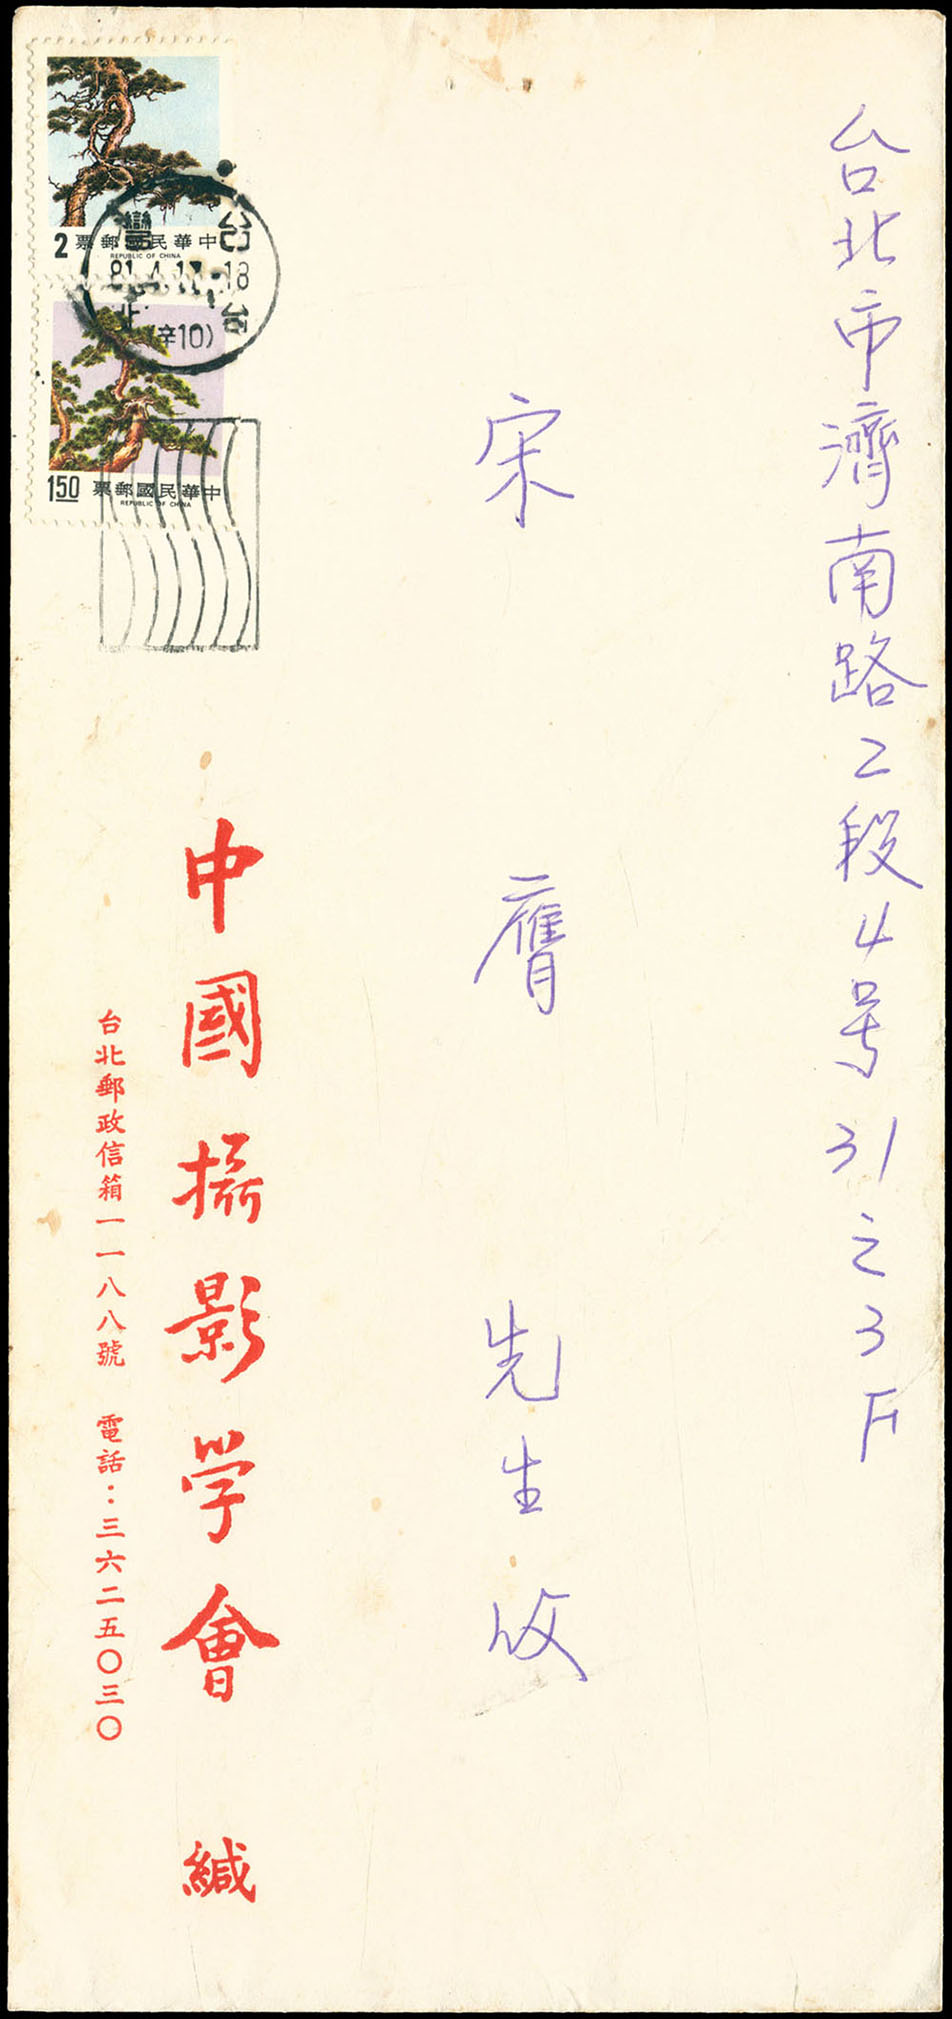 台北市濟南路2段4号31之3F
宋膺先生收
中國攝影学會 緘
台北郵政信箱一一八八號 電話：三六二五〇三〇
2 票郵國民華中
REPUBLIC OF CHINA
台灣
81.4.17.18
台北
(辛10)
150 票郵國民華中
REPUBLIC OF CHINA